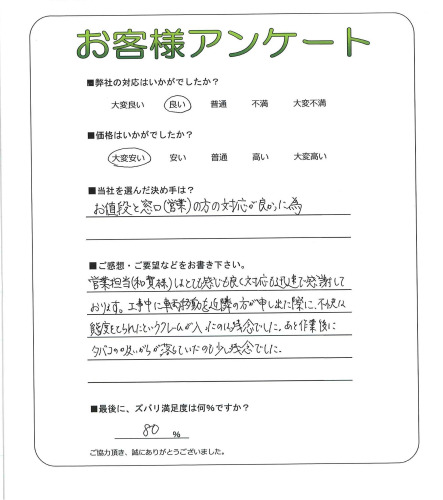 お客様アンケート
■弊社の対応はいかがでしたか?
大変良い 良い 普通 不満 大変不満
■価格はいかがでしたか?
大変安い 安い 普通 高い 大変高い
■当社を選んだ決め手は?
お値段と窓口(営業)の方の対応が良かった為
■ご感想・ご要望などをお書き下さい。
営業担当(和賀様)はとても感じも良く対応も迅速で感謝して
おります。工事中に車両移動を近隣の方が申し出た際に、不快な
態度をとられたというクレームが入ったのは残念でした。あと作業後に
タバコの吸いがらが落ちていたのも少し残念でした。
■最後に、ズバリ満足度は何%ですか?
80 %
ご協力頂き、誠にありがとうございました。